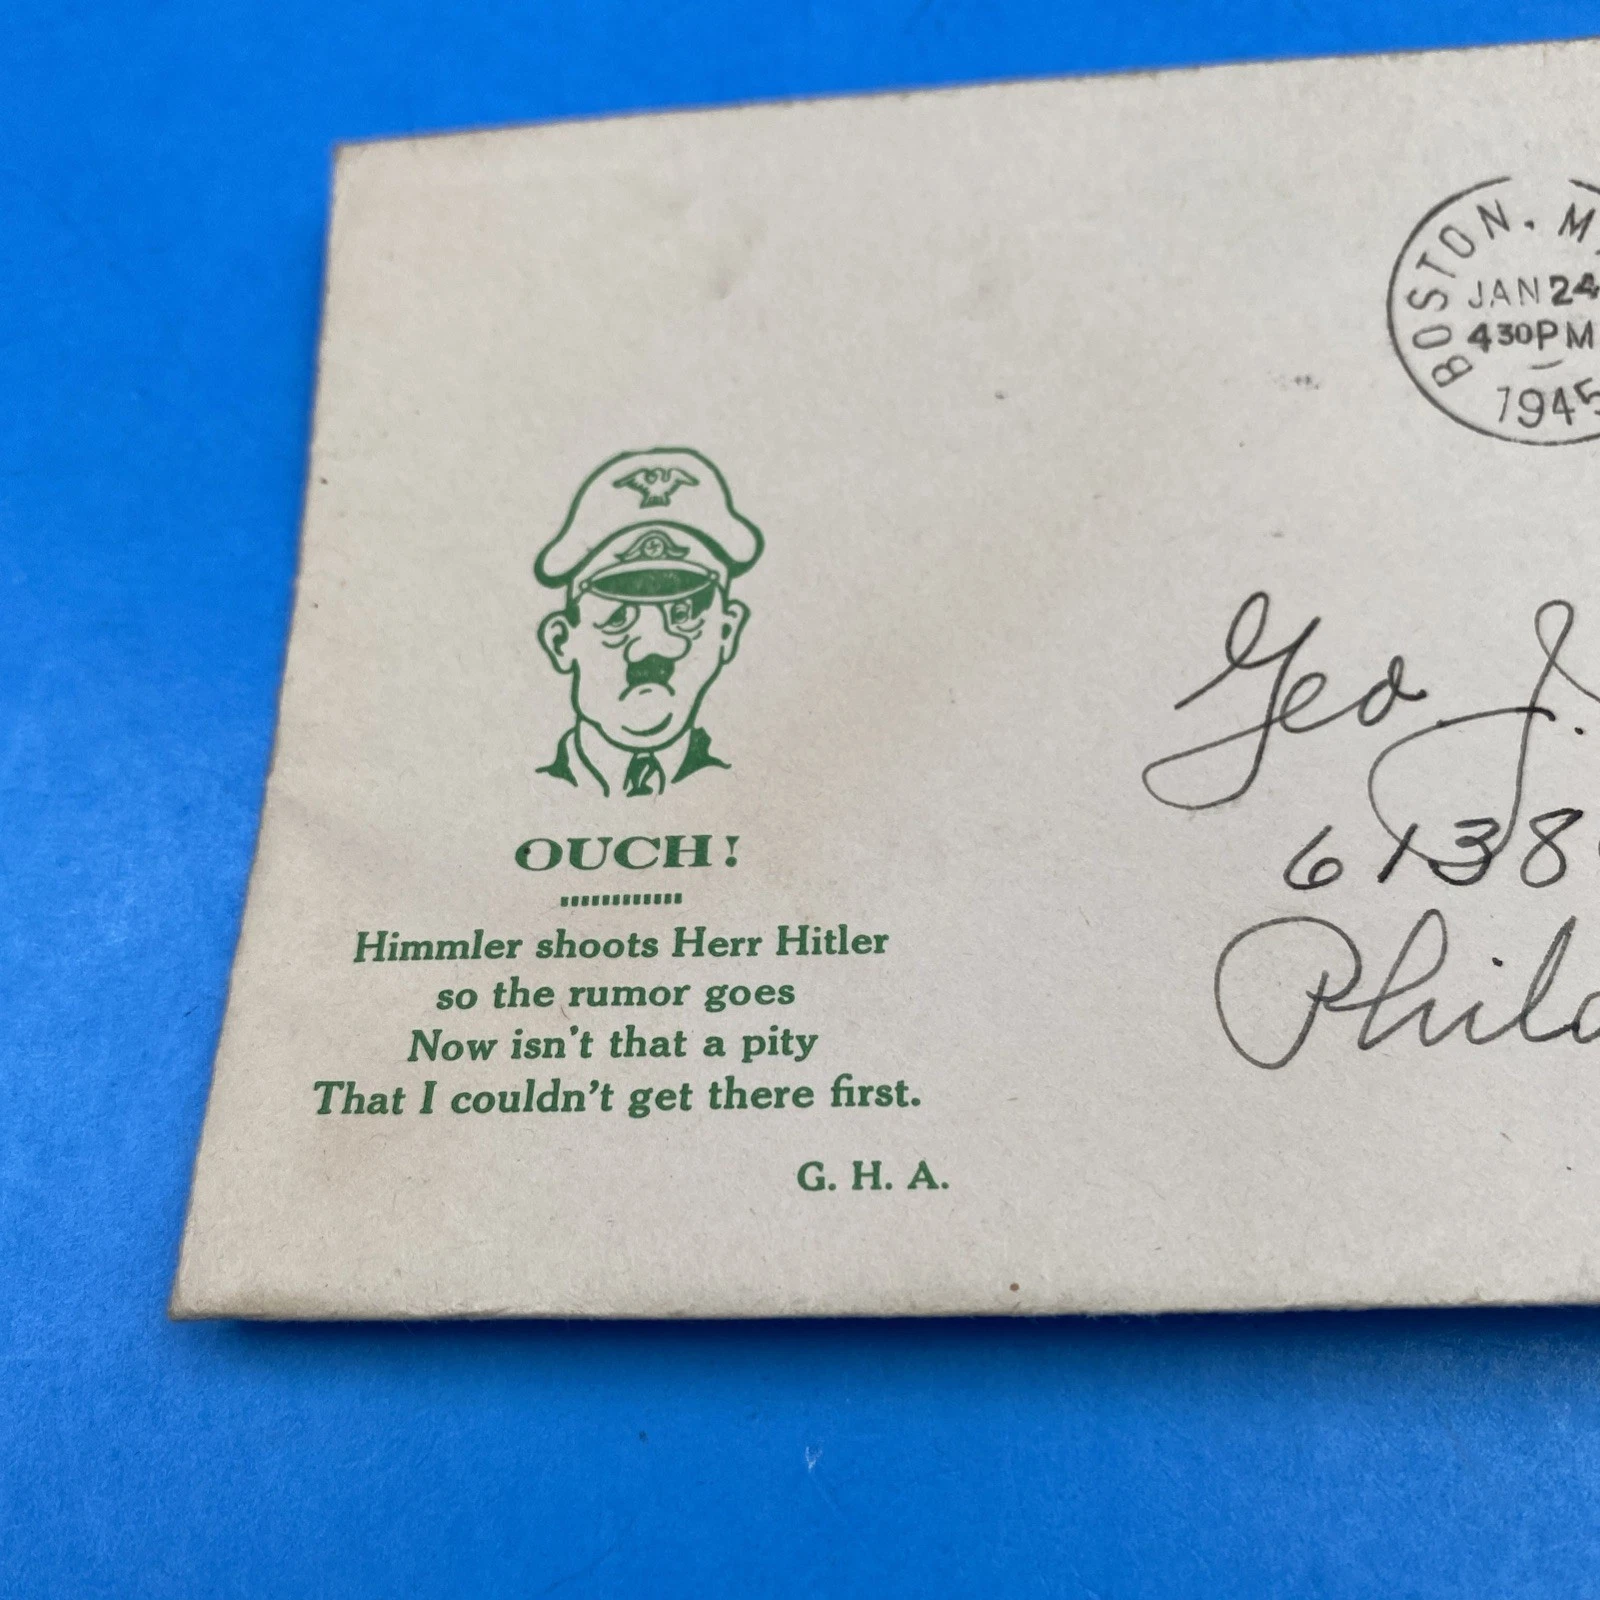 BOSTON. M
JAN 24
4 30 PM
1945
Geo J.
6138
Phila
OUCH!
Himmler shoots Herr Hitler
so the rumor goes
Now isn't that a pity
That I couldn't get there first.
G. H. A.